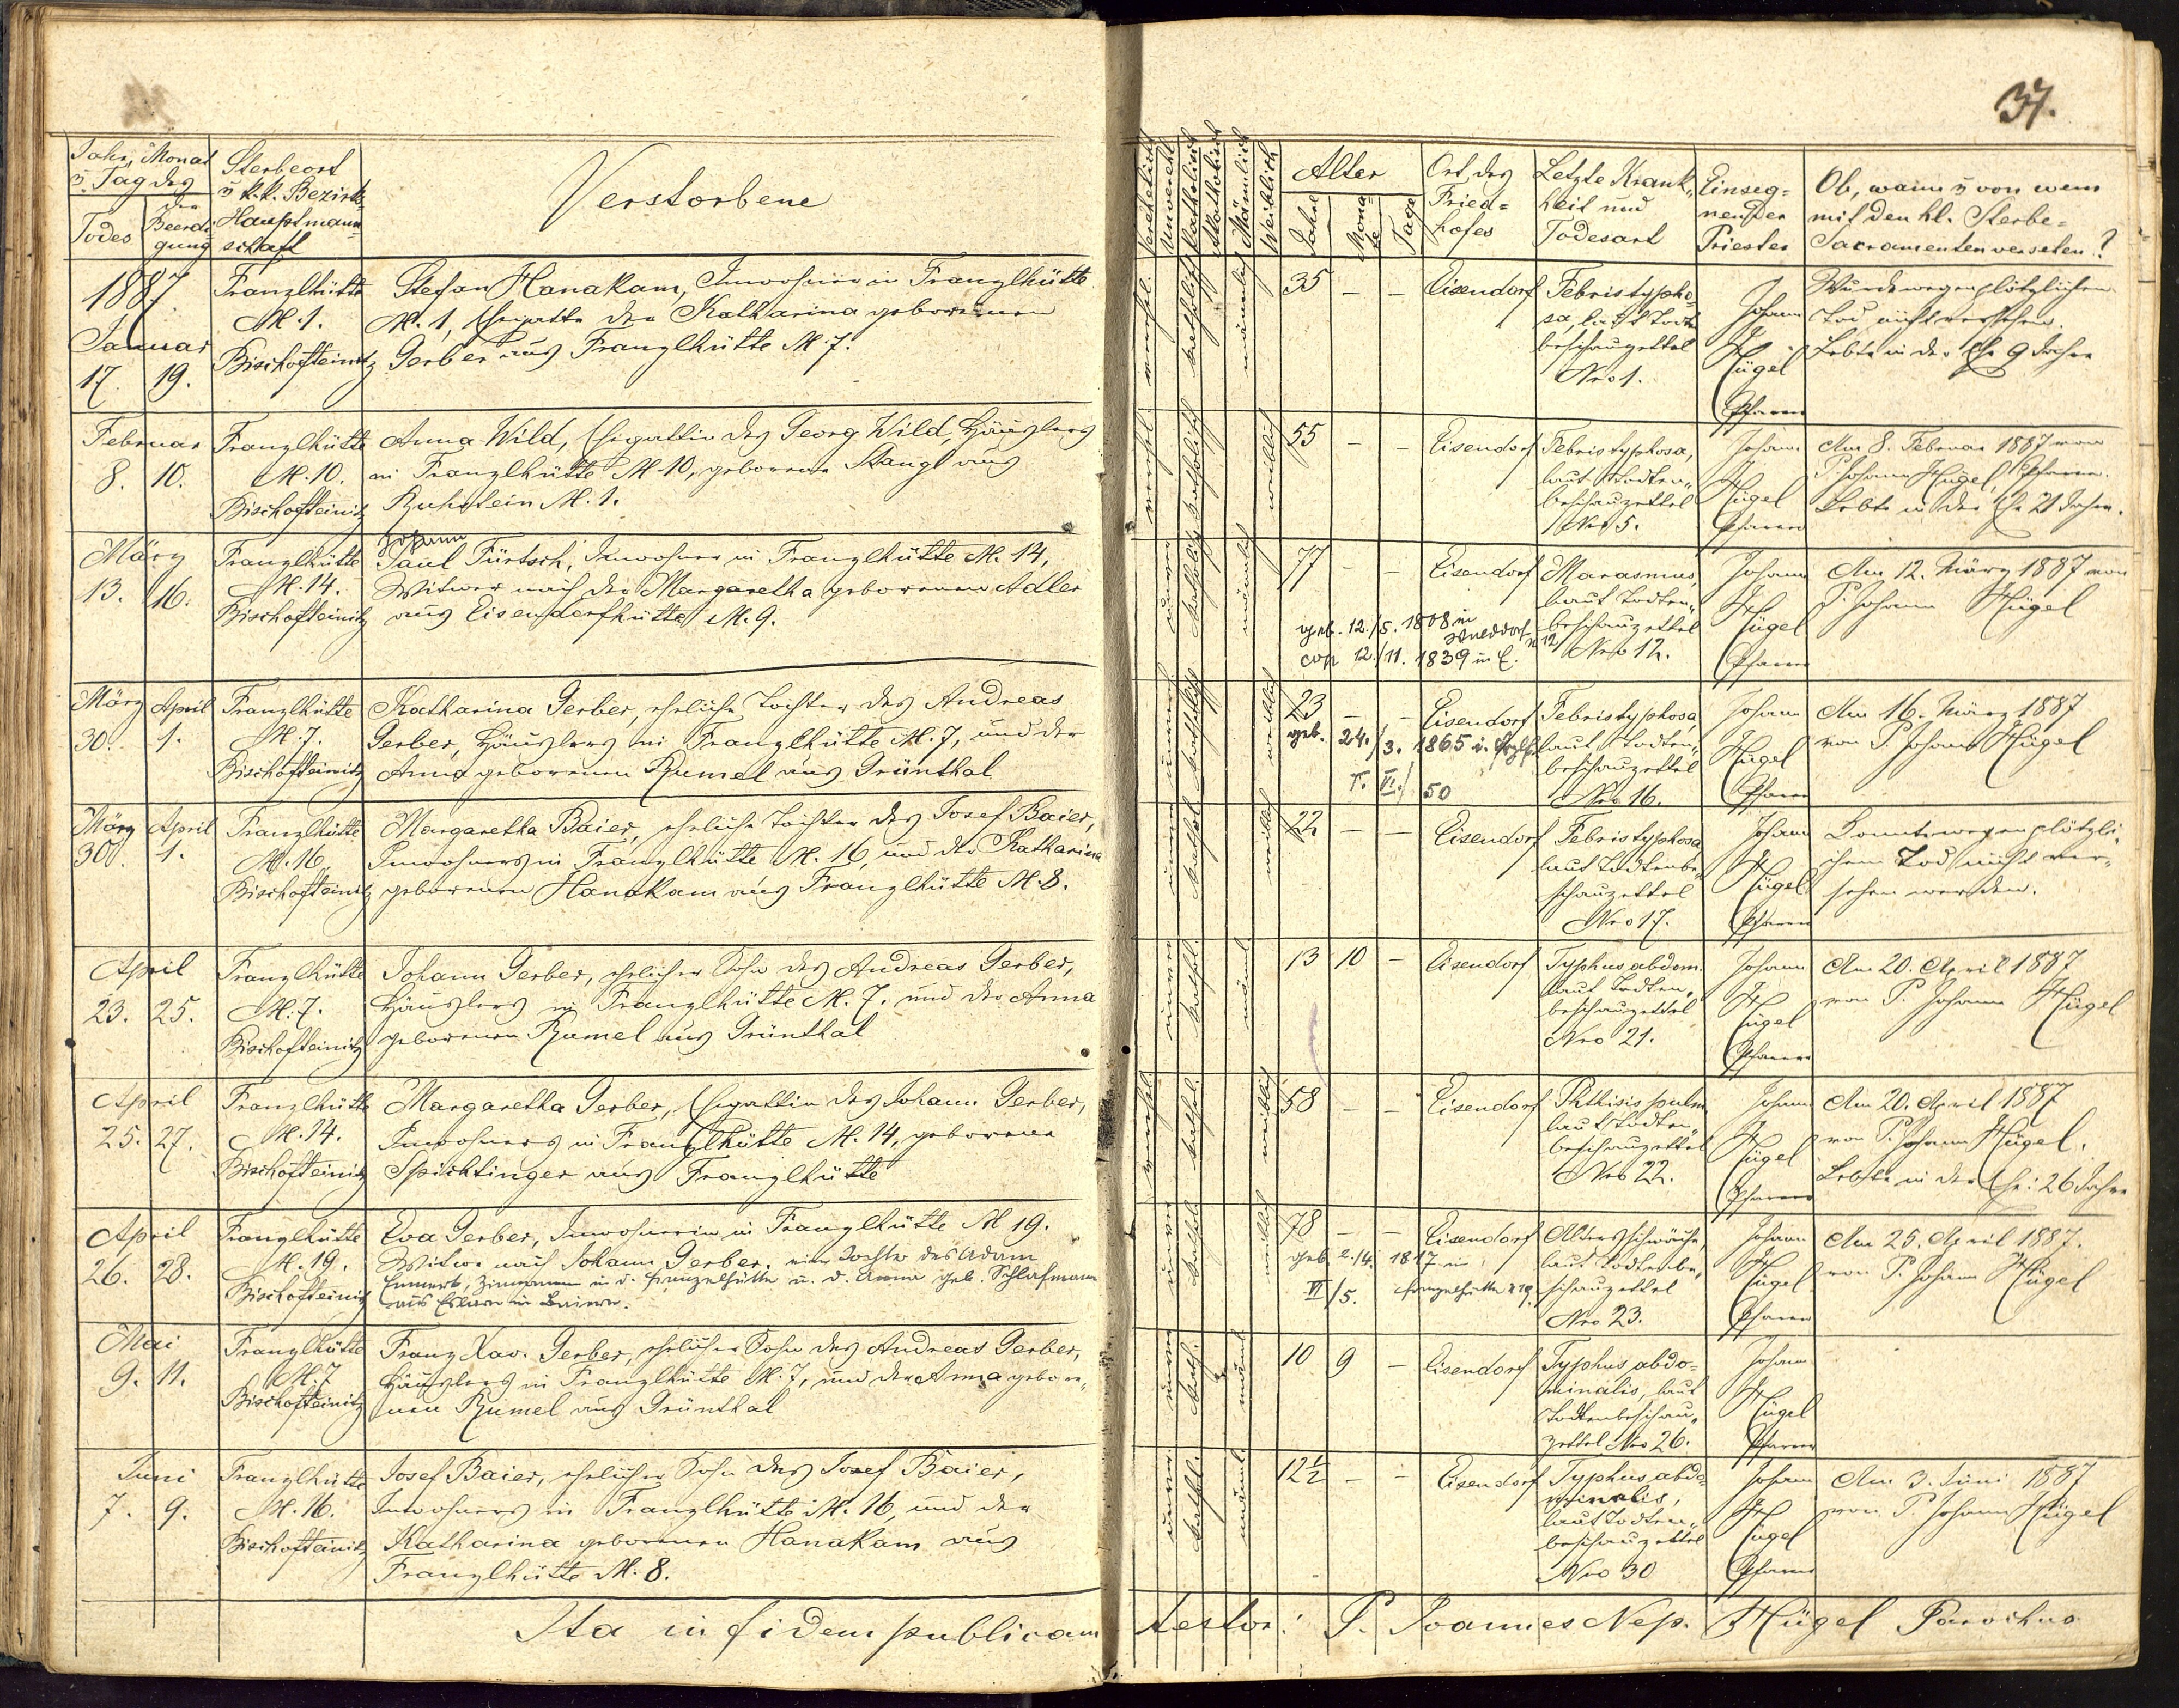 37.
Jahr, Monat
u. Tag des
Todes
Beerdi-
gung
Sterbeort
u k.k. Bezirks
Hauptmann-
schaft
Verstorbene
Verehelicht
Unverehl.
Katholisch
Akatholisch
Männlich
Weiblich
Alter
Jahre
Mona-
te
Tage
Ort des
Fried-
hofes
Letzte Krank-
heit und
Todesart
Einseg-
nender
Priester
Ob, wann u von wem
mit den hl. Sterbe-
Sacramenten versehen?
1887
Januar
17. 19.
Franzlhütte
N. 1.
Bischofteinitz
Stefan Hanakam, Inwohner in Franzlhütte
N. 1, Ehegatte der Katharina geborenen
Gerber aus Franzlhütte N. 7.
verehel.
katholisch
männlich
35 – –
Eisendorf
Febris typho-
sa, laut Todten
beschauzettel
Nro 1.
Johann
Hügel
Pfarrer
Wurde wegen plötzlichem
Tod nicht versehen.
Lebte in der Ehe 9 Jahre
Februar
8. 10.
Franzlhütte
N. 10.
Bischofteinitz
Anna Wild, Ehegattin des Georg Wild, Häuslers
in Franzlhütte N. 10, geborene Stangl aus
Ruhstein N. 1.
verehel.
katholisch
weiblich
55 – –
Eisendorf
Febris typhosa,
laut Todten-
beschauzettel
Nro 5.
Johann
Hügel
Pfarrer
Am 8. Februar 1887 von
P. Johann Hügel, Pfarrer.
Lebte in der Ehe 21 Jahre.
März
13. 16.
Franzlhütte
N. 14.
Bischofteinitz
Johann
Paul Fürtsch, Inwohner in Franzlhütte N. 14,
Witwer nach der Margaretha geborenen Adler
aus Eisendorfhütte N. 9.
katholisch
männlich
77 – –
Eisendorf
geb. 12./5. 1808 in
cop 12./11. 1839 in E.
Marasmus,
laut Todten-
beschauzettel
Nro 12.
Johann
Hügel
Pfarrer
Am 12. März 1887 von
P. Johann Hügel
März April
30. 1.
Franzlhütte
N. 7.
Bischofteinitz
Katharina Gerber, eheliche Tochter des Andreas
Gerber, Häuslers in Franzlhütte N. 7, und der
Anna geborenen Rumel aus Grünthal
katholisch
weiblich
23 – –
geb. 24./3. 1865 i.
T. VI./50
Eisendorf
Febris typhosa,
laut Todten-
beschauzettel
Nro 16.
Johann
Hügel
Pfarrer
Am 16. März 1887
von P. Johann Hügel
März April
30. 1.
Franzlhütte
N. 16
Bischofteinitz
Margaretha Baier, eheliche Tochter des Josef Baier,
Inwohners in Franzlhütte N. 16, und der Katharina
geborenen Hanakam aus Franzlhütte N. 8.
kathol.
weiblich
22 – –
Eisendorf
Febris typhosa
laut Todtenbe-
schauzettel
Nro 17.
Johann
Hügel
Pfarrer
Konnte wegen plötzli-
chem Tod nicht ver-
sehen werden.
April
23. 25.
Franzlhütte
N. 7.
Bischofteinitz
Johann Gerber, ehelicher Sohn des Andreas Gerber,
Häuslers in Franzlhütte N. 7. und der Anna
geborenen Rumel aus Grünthal
kathol.
männl.
13 10 –
Eisendorf
Typhus abdom.
laut Todten-
beschauzettel
Nro 21.
Johann
Hügel
Pfarrer
Am 20. April 1887
von P. Johann Hügel
April
25. 27.
Franzlhütte
N. 14.
Bischofteinitz
Margaretha Gerber, Ehegattin des Johann Gerber,
Inwohners in Franzlhütte N. 14, geborene
Spichtinger aus Franzlhütte
verehel.
kathol.
weiblich
58 – –
Eisendorf
Phthisis pulm.
laut Todten-
beschauzettel
Nro 22.
Johann
Hügel
Pfarrer
Am 20. April 1887
von P. Johann Hügel.
Lebte in der Ehe: 26 Jahre
April
26. 28.
Franzlhütte
N. 19.
Bischofteinitz
Eva Gerber, Inwohnerin in Franzlhütte N 19.
Witwe nach Johann Gerber. eine Tochter des Adam
in d. Franzelhütte u. d. Anna geb. Schlafmann
aus Eslarn in Baiern.
kathol.
weiblich
78 – –
geb. 2./4. 1817 in
VI/5. Franzelhütte N 19.
Eisendorf
Altersschwäche,
laut Todtenbe-
schauzettel
Nro 23.
Johann
Hügel
Pfarrer
Am 25. April 1887.
von P. Johann Hügel
Mai
9. 11.
Franzlhütte
N. 7
Bischofteinitz
Franz Xav. Gerber, ehelicher Sohn des Andreas Gerber,
Häuslers in Franzlhütte N. 7, und der Anna gebore-
nen Rumel aus Grünthal
kath.
männl.
10 9 –
Eisendorf
Typhus abdo-
minalis, laut
Todtenbeschau-
zettel Nro 26.
Johann
Hügel
Pfarrer
Juni
7. 9.
Franzlhütte
N. 16.
Bischofteinitz
Josef Baier, ehelicher Sohn des Josef Baier,
Inwohners in Franzlhütte N. 16, und der
Katharina geborenen Hanakam aus
Franzlhütte N. 8.
kathol.
männl.
12½ – –
Eisendorf
Typhus abdo-
minalis,
laut Todten-
beschauzettel
Nro 30
Johann
Hügel
Pfarrer
Am 3. Juni 1887
von P. Johann Hügel
Ita in fidem publicam testor: P. Joannes Nep. Hügel Parochus